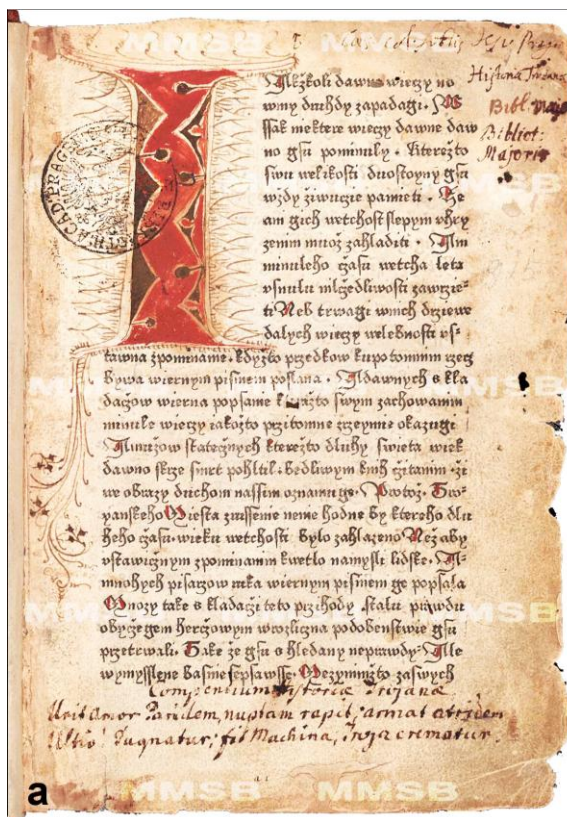 MMSB MMSB
Historia
Bibl: Majo
Bibliot:
Majoris
dawne wieczy no
winy druhdy zapadagi. W
ssak niektere wieczy dawne daw
no gsu pominuly. Kterezto
swu welikosti duostoyny gsu
wzdy ziwugie pamieti. Ze
ani gich wetchost slepym vhry
zenim muoz zahladiti. Ani
minuleho czasu wetcha leta
vsnulu mlczedliwosti zawrzie-
ti Neb trwagi wnich drziewe
dalych wieczy welebnosti vs-
tawna zpominanie. kdyzto przedkow kupotomnim rzecz
bywa wiernym pismem poslana. A dawnych skla
daczow wierna popsanie kterazto swym zachowanim
minule wieczy iakozto przitomne zrzeymie okazugi
A muzow stateznych kterezto dluhy swieta wiek
dawno skrze smrt pohltil. bedliwym knih cztanim. zi
we obrazy duchom nassim oznamuge. Protoz. Tro-
yanskeho Miesta zrussenie nenie hodne by ktereho dlu
heho czasu. wieku wetchosti bylo zahlazeno Nez aby
vstawicznym zpominanim kwetlo namysli lidske. A
mnohych pisarzow ruka wiernym pismem ge popsala
Mnozy take skladaczi teto przihody stalu prawdu
obyczegem herczowym wrozliczna podobenstwie gsu
przetewali. Take ze gsu shledany neprawdy. Ale
wymysslene basnie sepsawsse. Mezyninizto zaswych
Compendium historiæ Trojanæ
Urit amor Paridem, nuptam rapit; armat atriden
Ultio: Pugnatur; fit Machina, Troja crematur.
a
MMSB MMSB